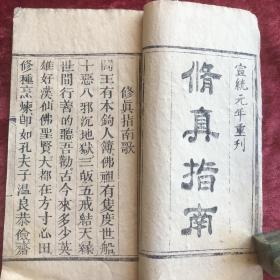 宣統元年重刊
脩真指南
修真指南歌
閻王有本鉤人簿佛祖有隻度世船
十惡八邪沉地獄三皈五戒結天緣
世間行善的聽吾勸古今來多少英
雄好漢仙佛聖賢大都在方寸心田
修種烹煉即如孔夫子溫良恭儉齋